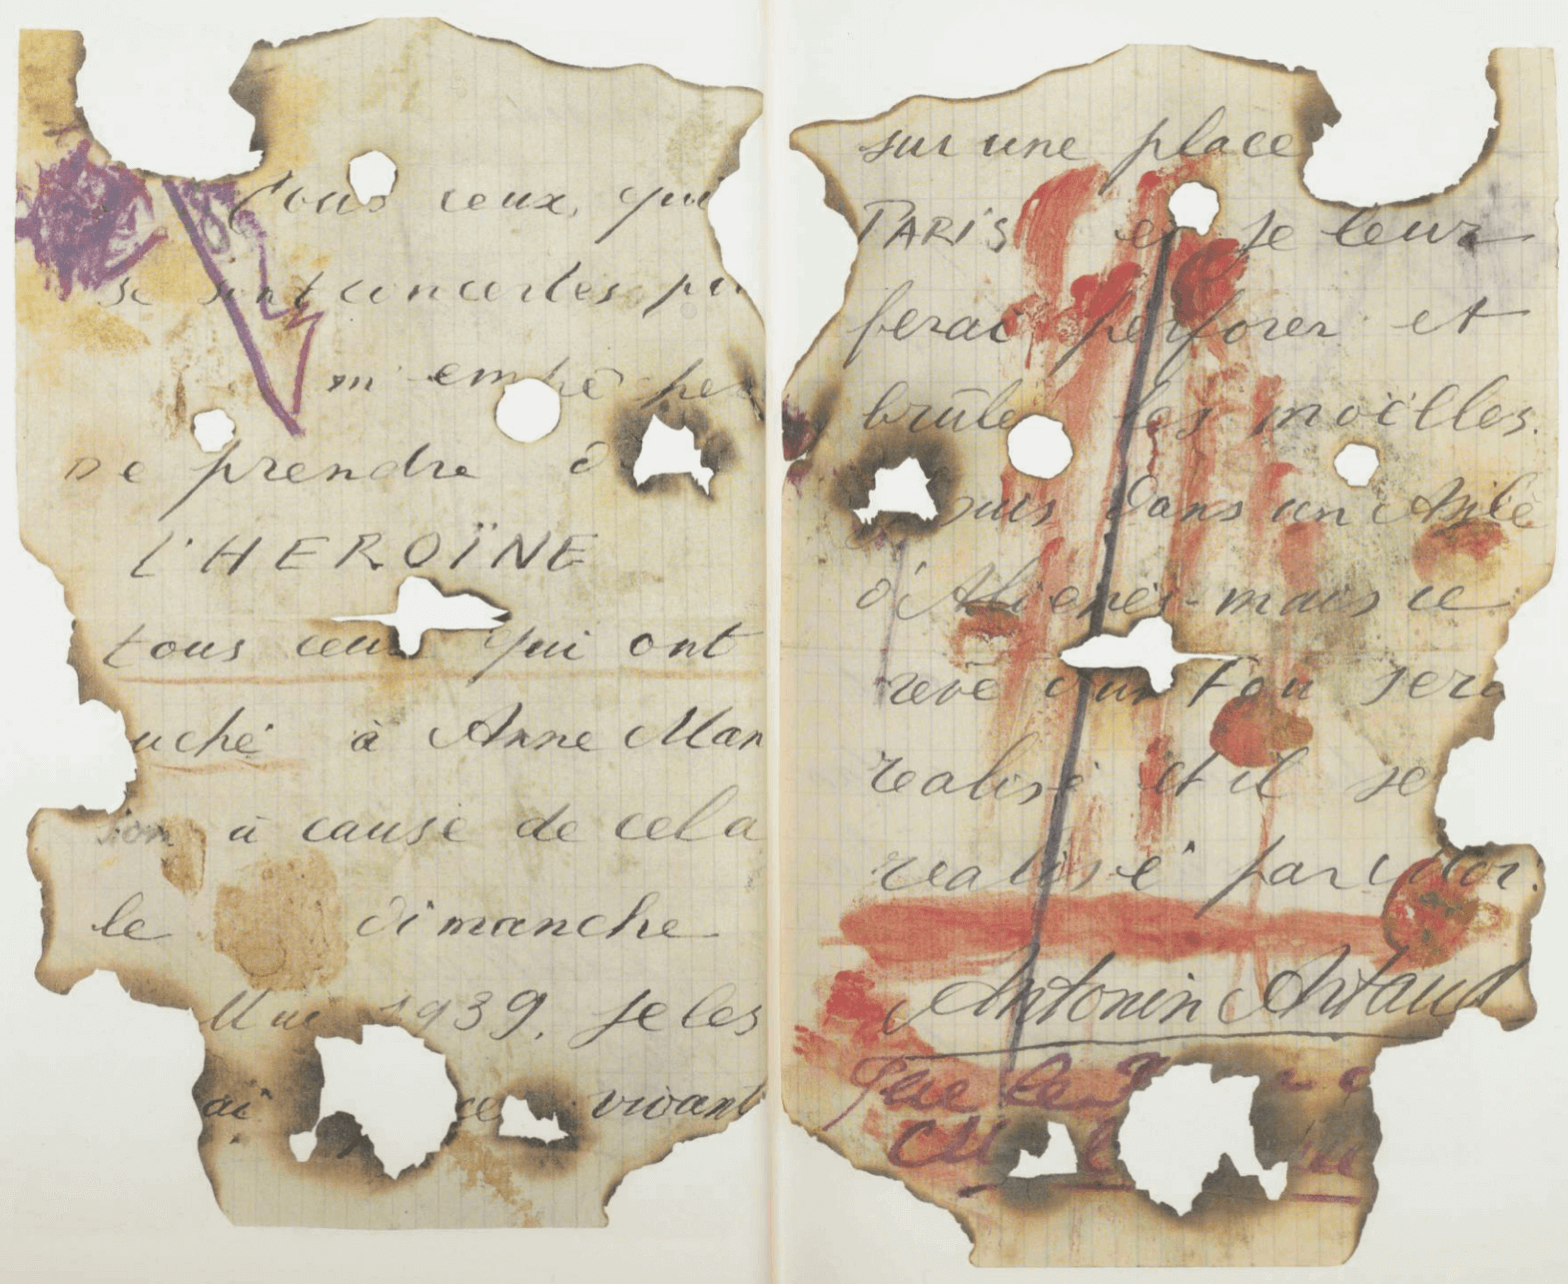 Tous ceux, qui
se sont concertés
m'empê
De prendre
L'HEROÏNE
tous ceux qui ont
uché à Anne Man
son à cause de cela
le dimanche
Mai 1939, je les
ai vivant
sur une place
PARIS et je leur
ferai perforer et
brûle les moëlles.
suis dans un Asile
d'Aliénés mais ce
rêve d'un Fou sera
réalisé et il se
réalisé par Moi.
Antonin Artaud